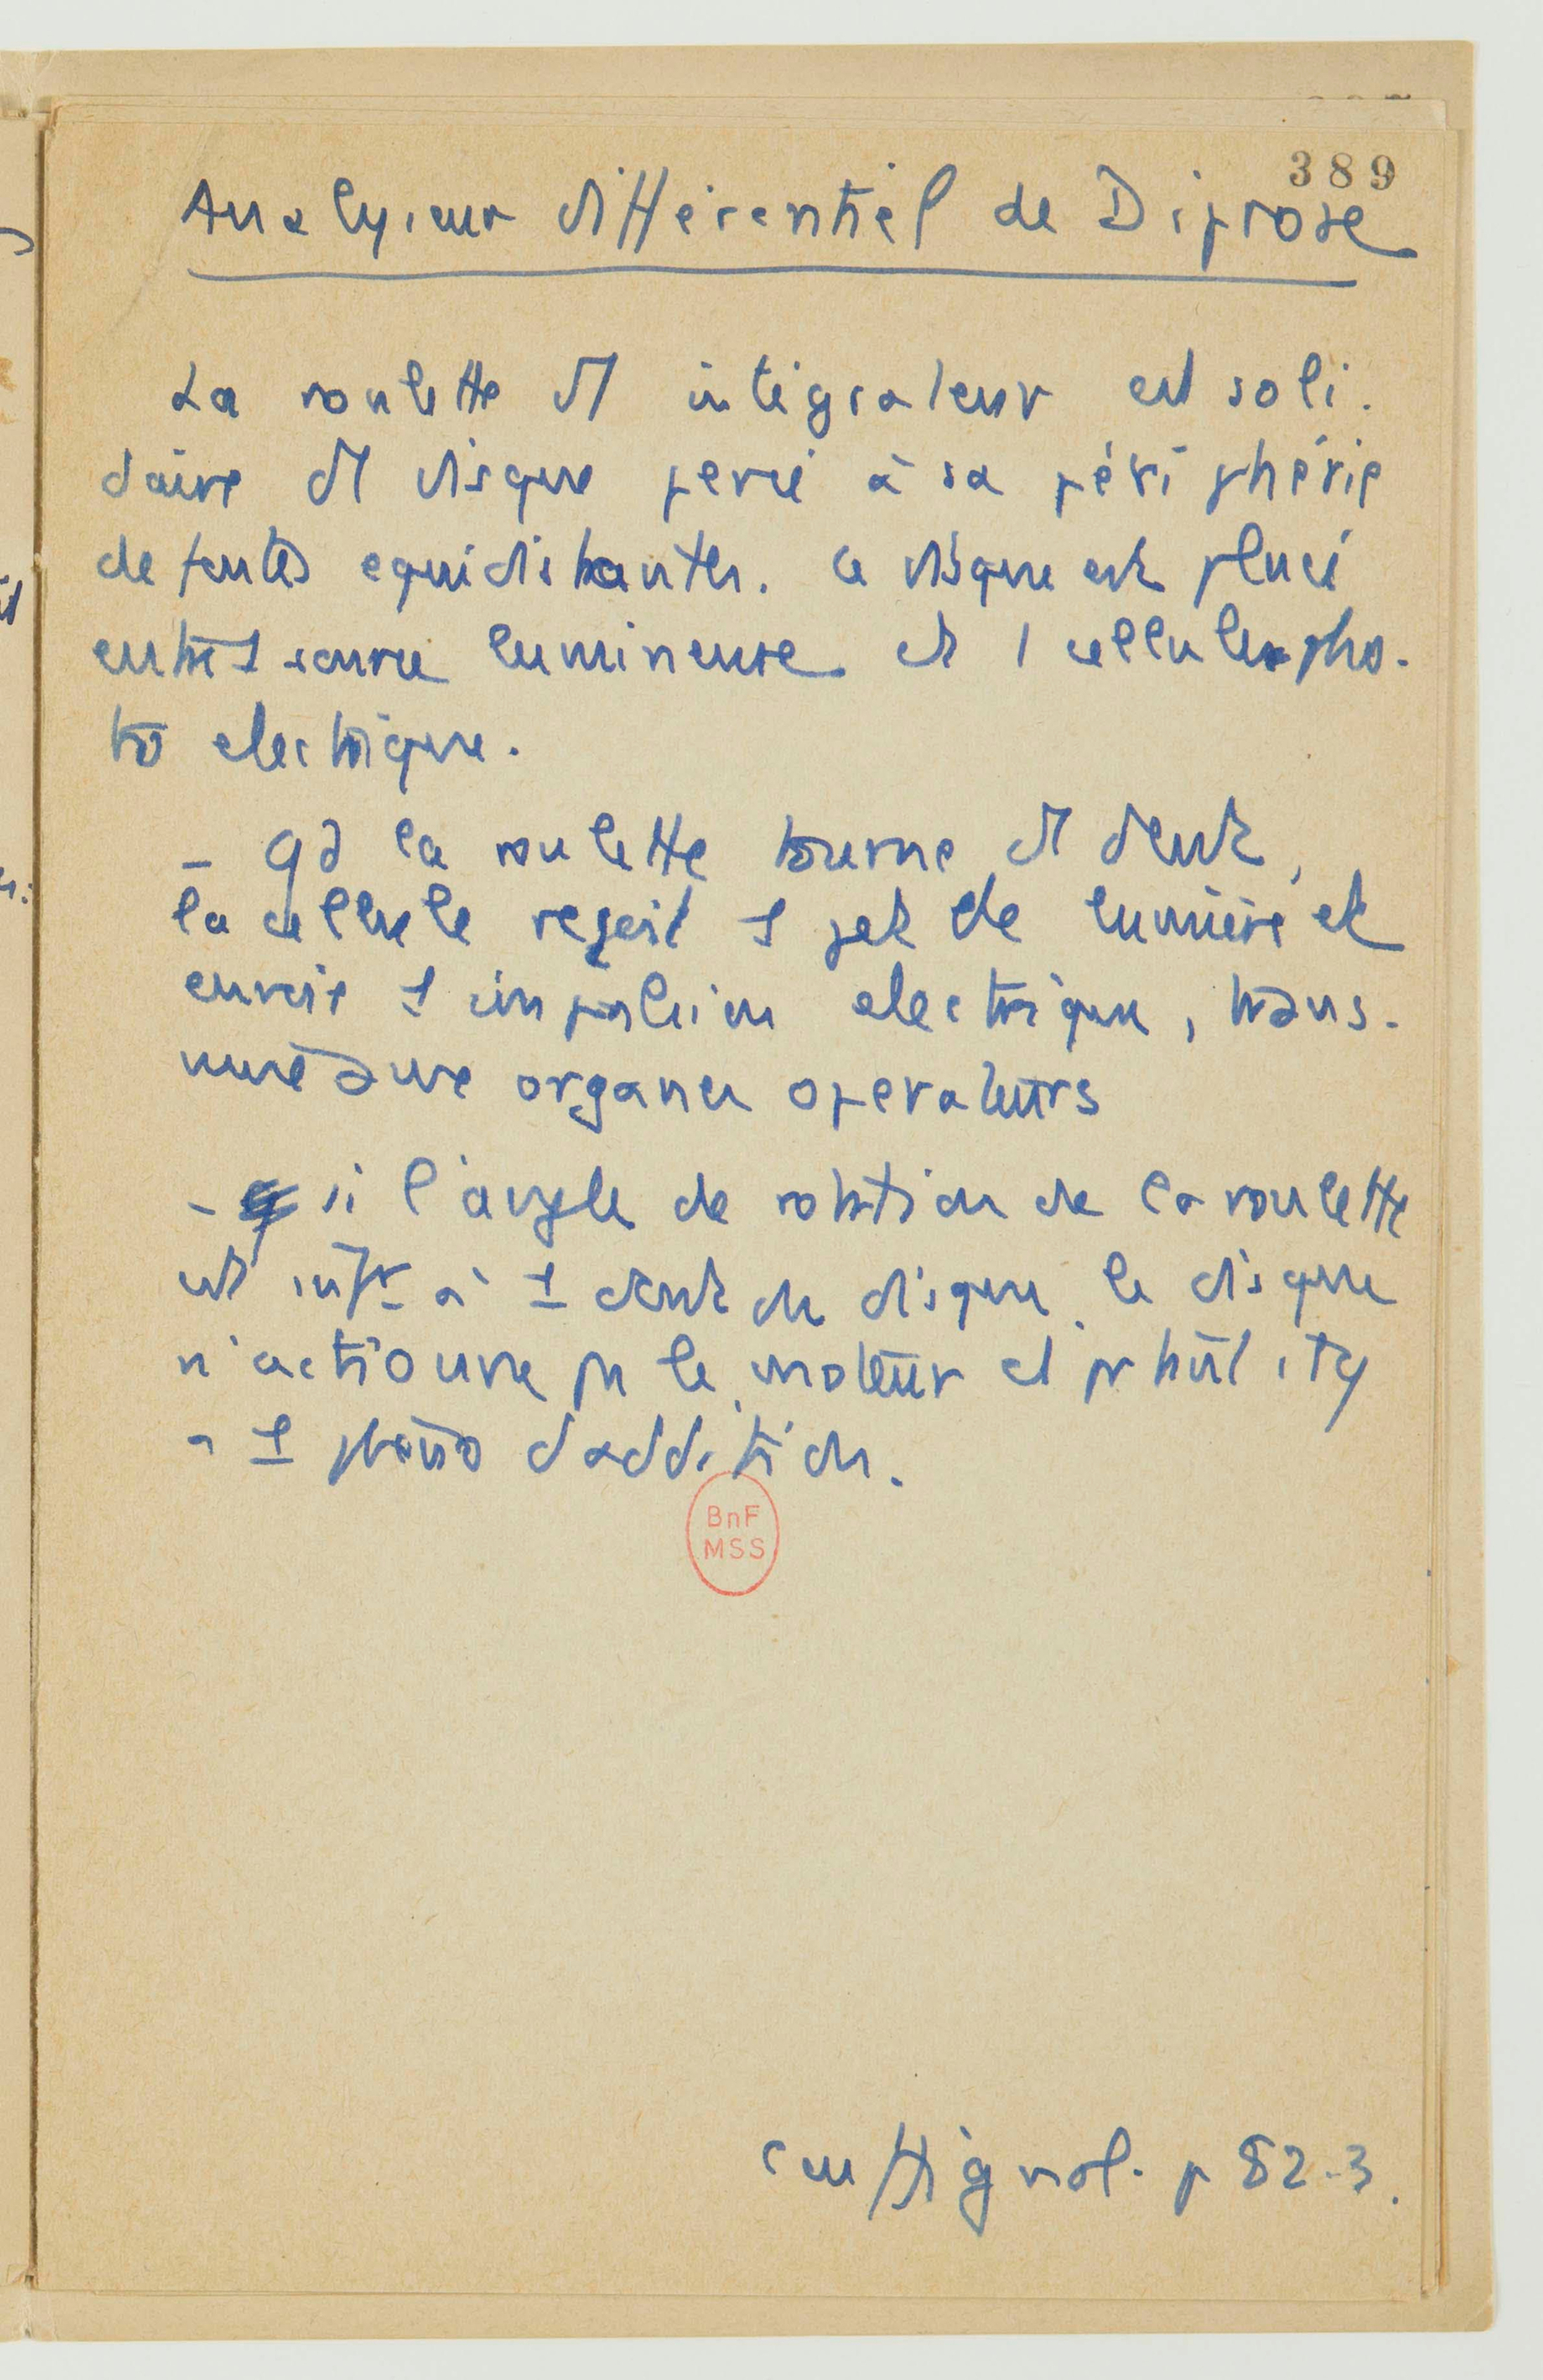 389
Analyseur différentiel de Diprose
La roulette d'1 intégrateur est soli-
daire d'1 disque percé à sa périphérie
de fentes equidistantes. Ce disque est placé
entre 1 source lumineuse et 1 cellule pho-
to electrique.
- Qd la roulette tourne d'1 dent,
la cellule reçoit 1 jet de lumière et
envoie 1 impulsion electrique, trans-
mise aux organes operateurs
- si l'angle de rotation de la roulette
est infr à 1 dent du disque, le disque
n'actionne pas le moteur et
à 1 d'addition.
BnF
MSS
Couffignal. p 82-3.